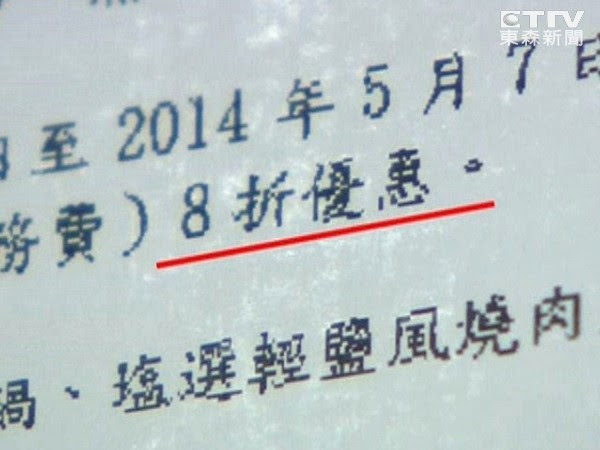 ETTV
東森新聞
至2014年5月7日
務費）8折優惠。
鍋、塩選輕鹽風燒肉